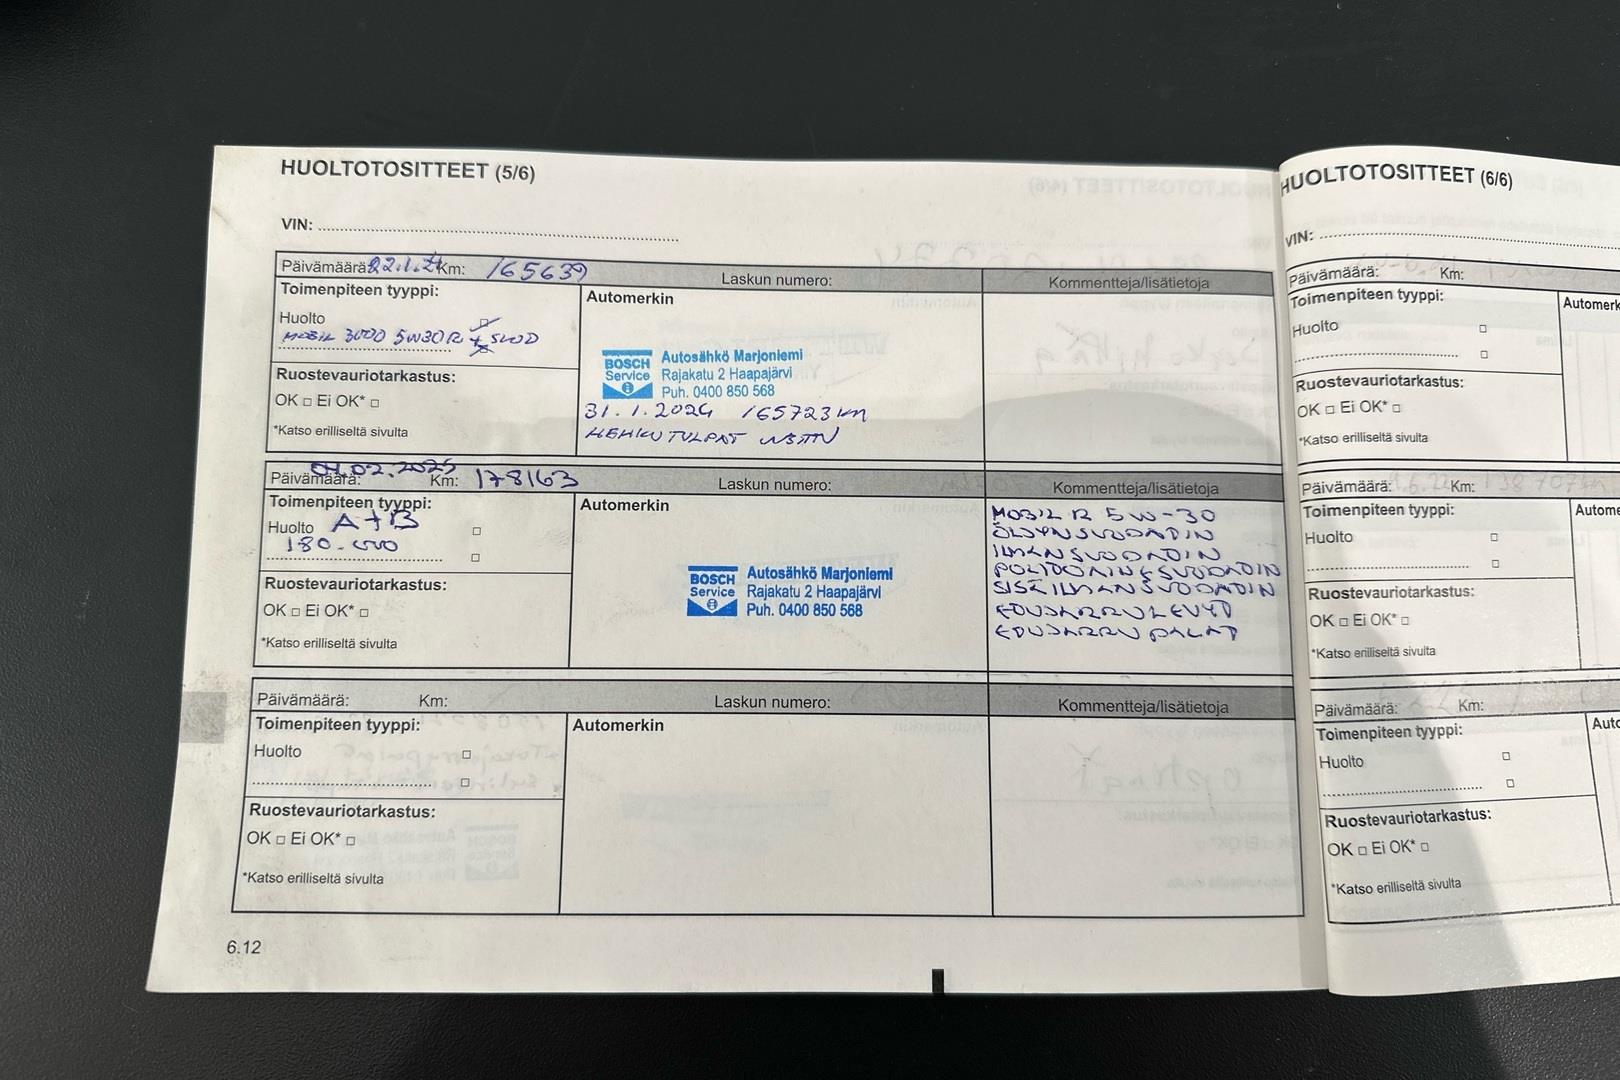 HUOLTOTOSITTEET (5/6)
VIN:
Päivämäärä: 22.1.24 Km: 165639 Laskun numero: Kommentteja/lisätietoja
Toimenpiteen tyyppi:
Automerkin
Huolto
MOBIL 3000 5W30R + SUOD
BOSCH Service
Autosähkö Marjoniemi
Rajakatu 2 Haapajärvi
Puh. 0400 850 568
31.1.2024 165723 km
HEHKUTULPAT
Ruostevauriotarkastus:
OK □ Ei OK* □
*Katso erilliseltä sivulta
Päivämäärä: 04.02.2025 Km: 178163 Laskun numero: Kommentteja/lisätietoja
Toimenpiteen tyyppi:
Automerkin
Huolto A+B
180.000
BOSCH Service
Autosähkö Marjoniemi
Rajakatu 2 Haapajärvi
Puh. 0400 850 568
MOBIL R 5W-30
ÖLJYNSUODATIN
ILMANSUODATIN
POLTOAINESUODATIN
SISÄILMANSUODATIN
ETUJARRULEVYT
ETUJARRUPALAT
Ruostevauriotarkastus:
OK □ Ei OK* □
*Katso erilliseltä sivulta
Päivämäärä: Km: Laskun numero: Kommentteja/lisätietoja
Toimenpiteen tyyppi:
Automerkin
Huolto
Ruostevauriotarkastus:
OK □ Ei OK* □
*Katso erilliseltä sivulta
6.12
HUOLTOTOSITTEET (6/6)
VIN:
Päivämäärä: Km:
Toimenpiteen tyyppi:
Automerk
Huolto
Ruostevauriotarkastus:
OK □ Ei OK* □
*Katso erilliseltä sivulta
Päivämäärä: Km:
Toimenpiteen tyyppi:
Autome
Huolto
Ruostevauriotarkastus:
OK □ Ei OK* □
*Katso erilliseltä sivulta
Päivämäärä: Km:
Toimenpiteen tyyppi:
Auto
Huolto
Ruostevauriotarkastus:
OK □ Ei OK* □
*Katso erilliseltä sivulta